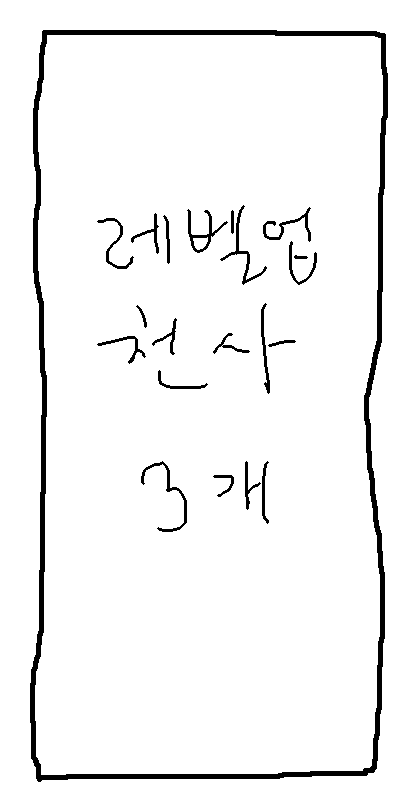 레벨업
천사
3개